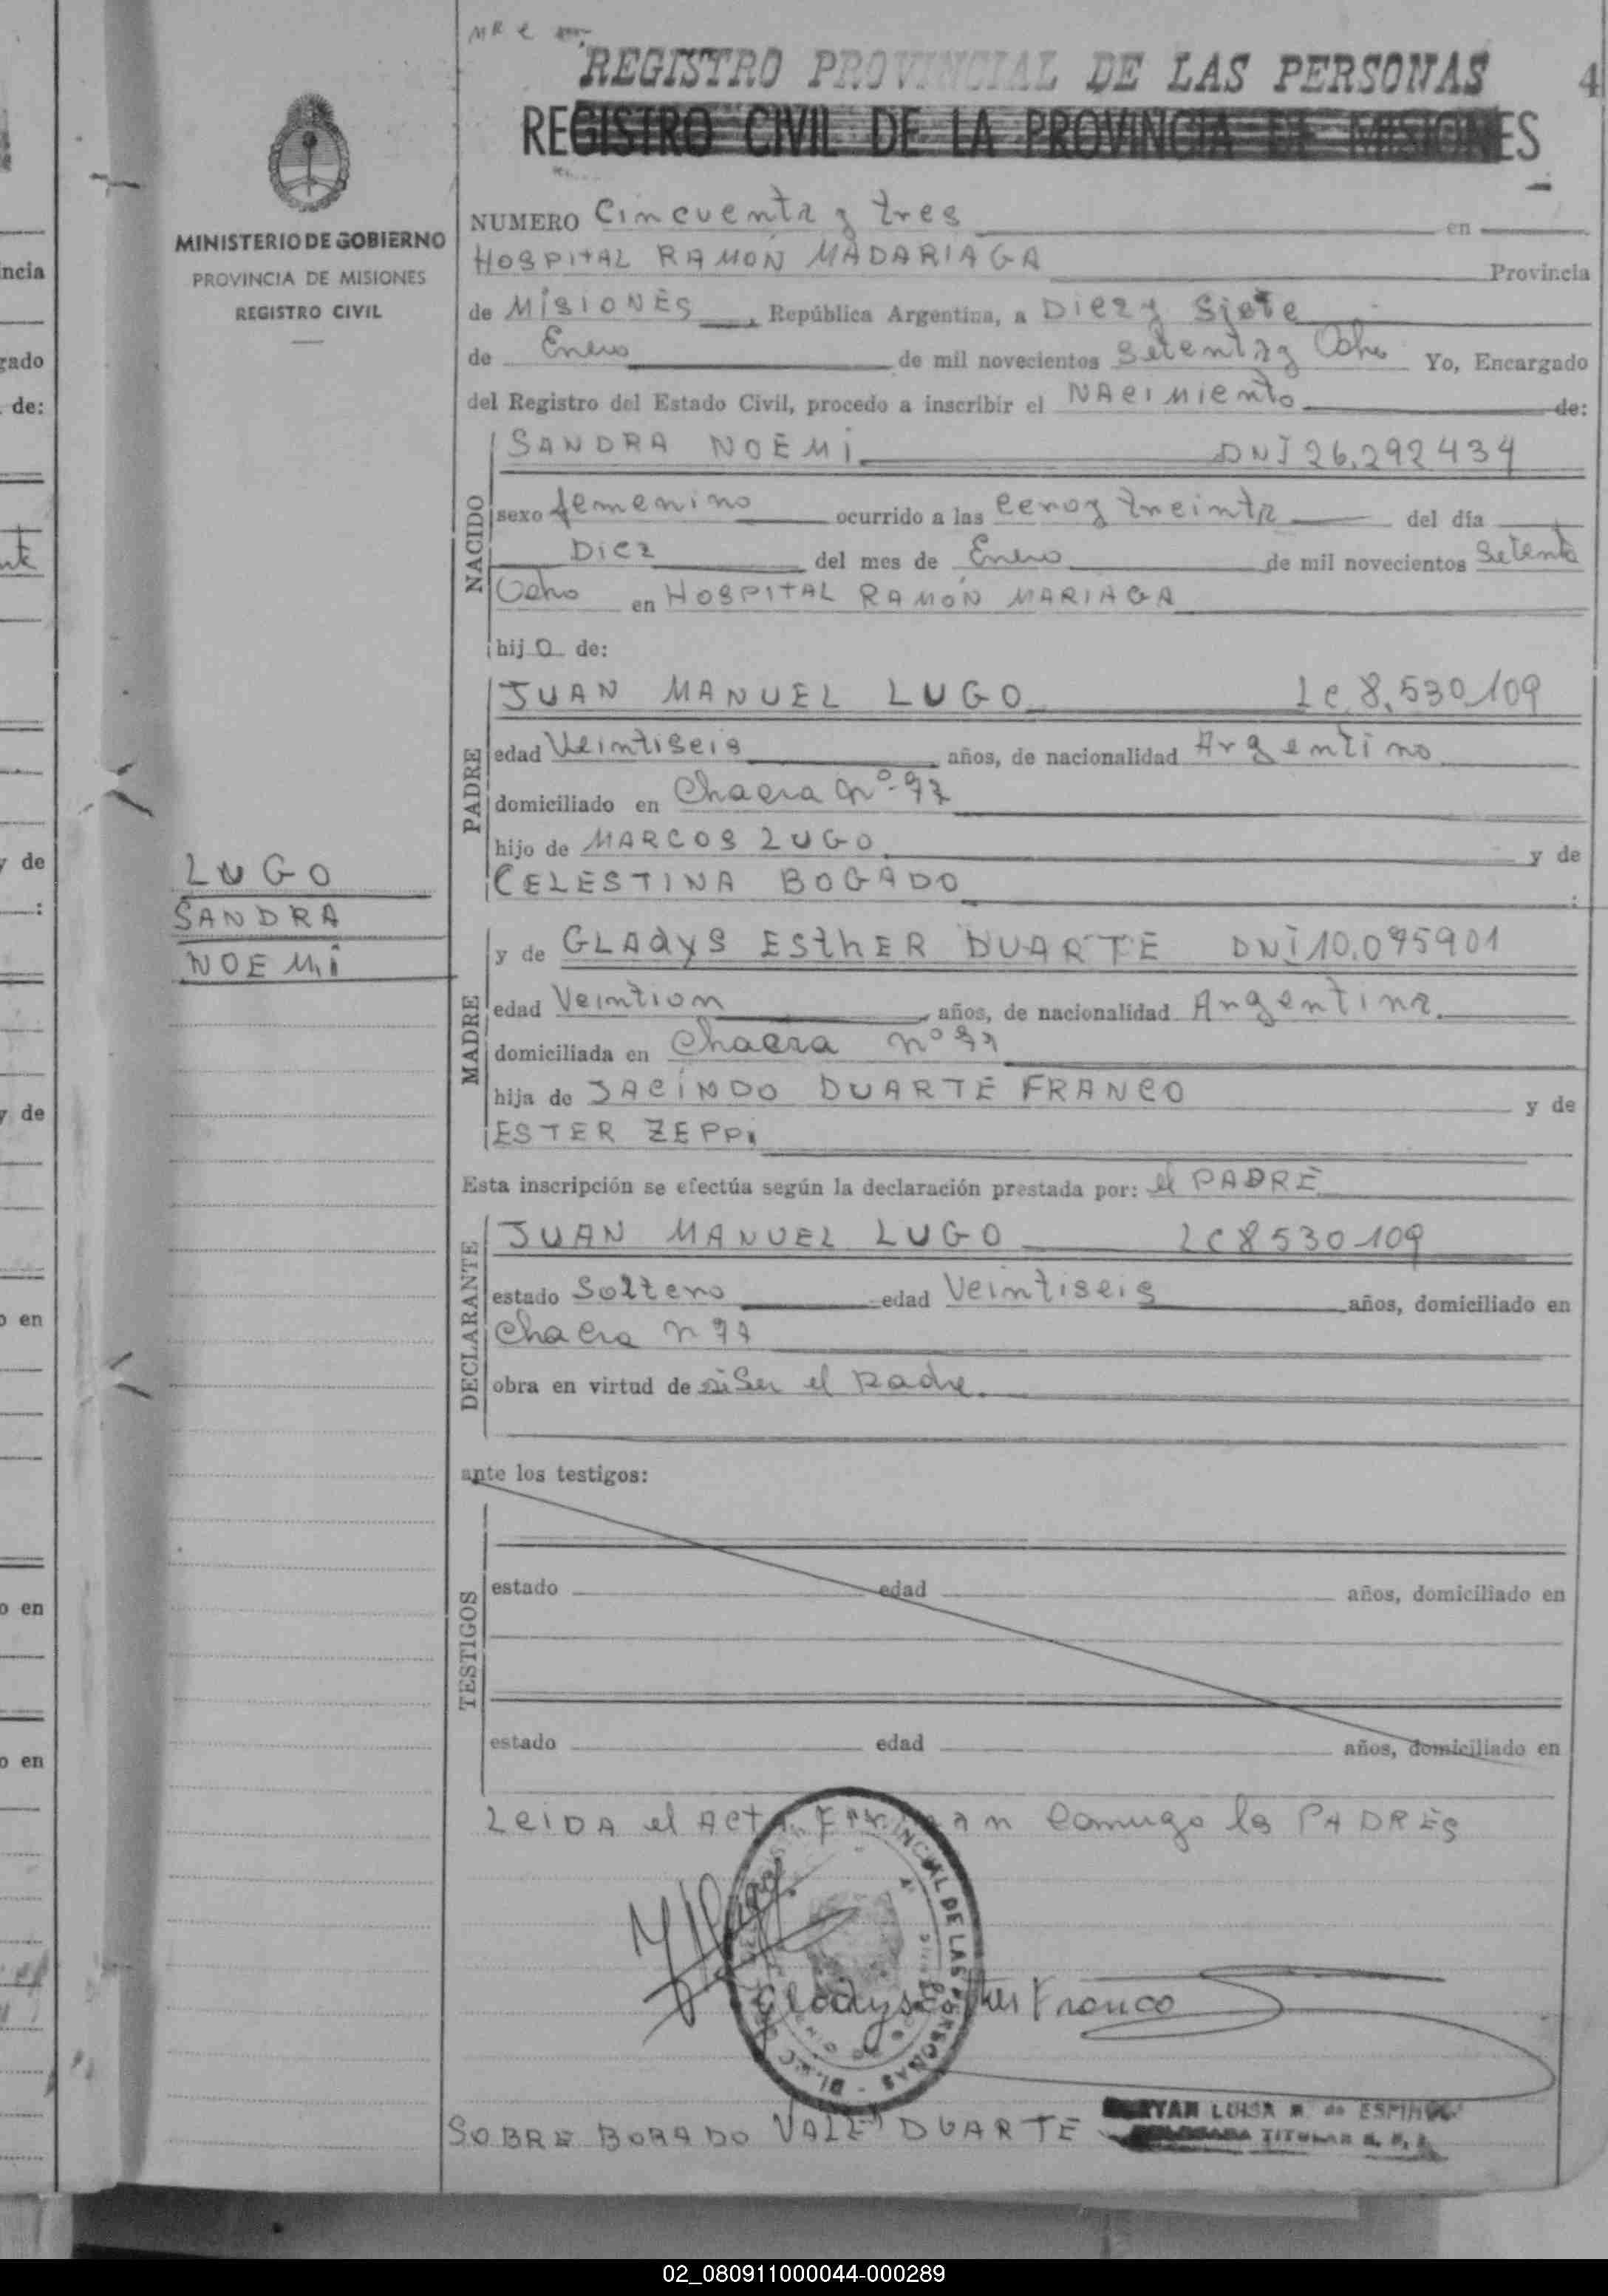 REGISTRO PROVINCIAL DE LAS PERSONAS 4
REGISTRO CIVIL DE LA PROVINCIA DE MISIONES
MINISTERIO DE GOBIERNO
PROVINCIA DE MISIONES
REGISTRO CIVIL
LUGO
SANDRA
NOEMÍ
NUMERO Cincuenta y tres en
HOSPITAL RAMÓN MADARIAGA Provincia
de MISIONES, República Argentina, a Diez y Siete
de Enero de mil novecientos Setenta y Ocho Yo, Encargado
del Registro del Estado Civil, procedo a inscribir el NAcimiento de:
NACIDO
SANDRA NOEMI DNI 26.292434
sexo femenino ocurrido a las cero y treinta del día
Diez del mes de Enero de mil novecientos Setenta
Ocho en HOSPITAL RAMÓN MARIAGA
hija de:
PADRE
JUAN MANUEL LUGO LC 8.530109
edad Veintiseis años, de nacionalidad Argentino
domiciliado en Chacra nº
hijo de MARCOS LUGO y de
CELESTINA BOGADO
MADRE
y de GLAdyS ESthER DUARTE DNI 10.075901
edad años, de nacionalidad Argentina
domiciliada en Chacra nº
hija de JACINDO DUARTE FRANCO y de
ESTER ZEPPI
Esta inscripción se efectúa según la declaración prestada por: el PADRE
DECLARANTE
JUAN MANUEL LUGO LC 8530109
estado Soltero edad Veintiseis años, domiciliado en
Chacra n
obra en virtud de ser el padre.
ante los testigos:
TESTIGOS
estado edad años, domiciliado en
estado edad años, domiciliado en
LEIDA el ActA Firman conmigo los PADRES
Gladys Franco
SOBRE BORADO VALE DUARTE
LUISA de
TITULAR
02_080911000044-000289